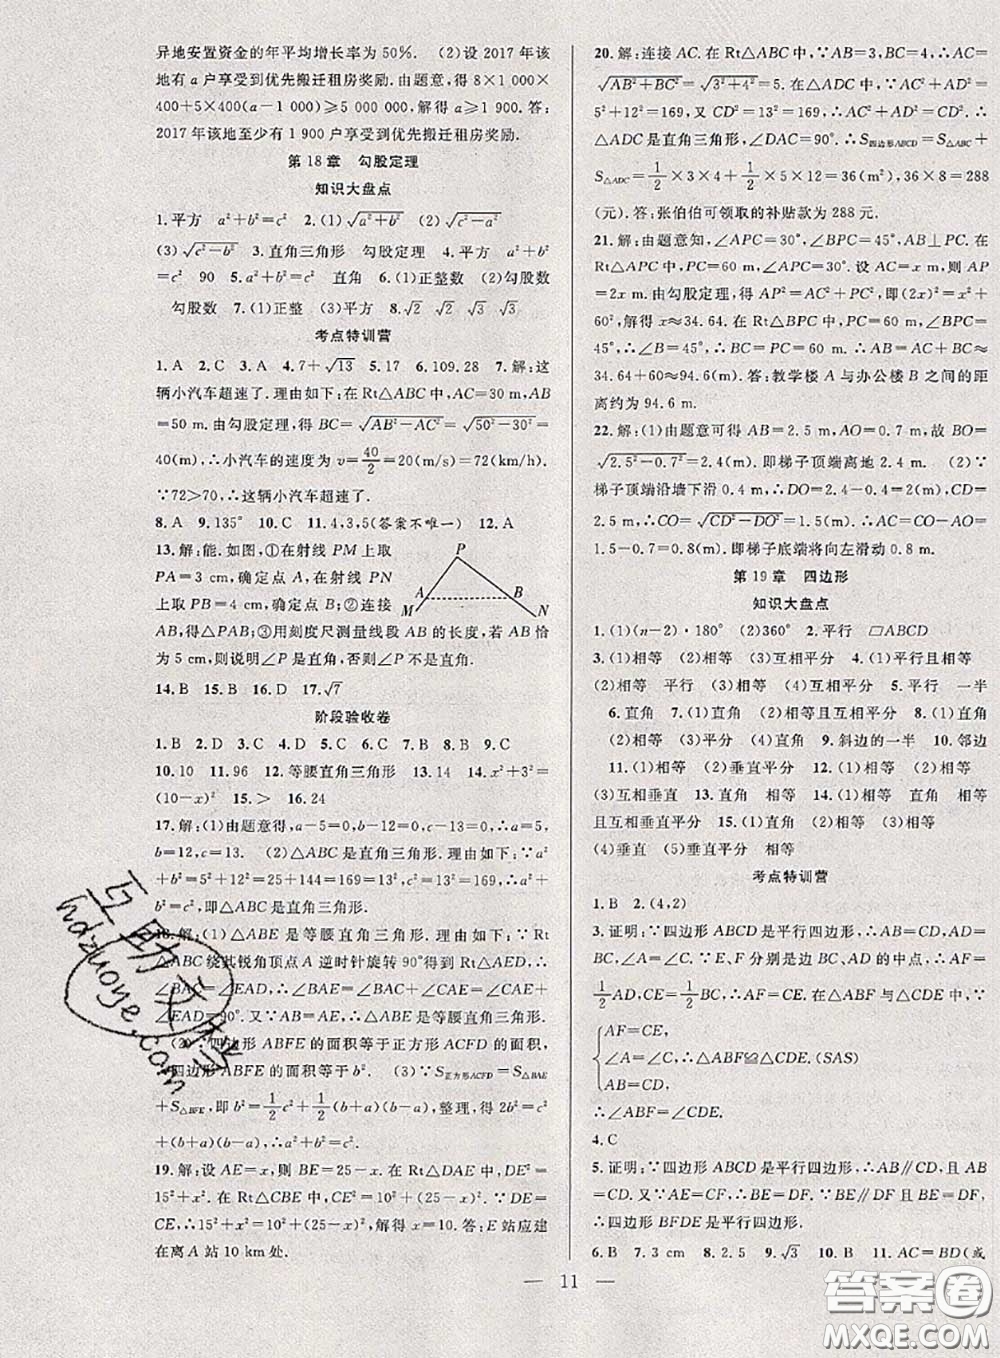 异地安置资金的年平均增长率为 50%. (2)设 2017 年该
地有 a 户享受到优先搬迁租房奖励. 由题意, 得 8×1 000×
400+5×400(a-1 000)≥5 000 000, 解得 a≥1 900. 答:
2017 年该地至少有 1 900 户享受到优先搬迁租房奖励.
第 18 章 勾股定理
知识大盘点
1.平方 a²+b²=c² 2.(1)√(a²+b²) (2)√(c²-a²)
(3)√(c²-b²) 3.直角三角形 勾股定理 4.平方 a²+b²
=c² 90 5.a²+b²=c² 直角 6.(1)正整数 (2)勾股数
勾股数 7.(1)正整 (3)平方 8.√2 √2 √3 √3
考点特训营
1.A 2.C 3.A 4.7+√13 5.17 6.109.28 7.解:这
辆小汽车超速了. 理由如下:在 Rt△ABC 中, AC=30 m, AB
=50 m. 由勾股定理, 得 BC=√(AB²-AC²)=√(50²-30²)=
40(m). ∴小汽车的速度为 v=40/2=20(m/s)=72(km/h).
∵72>70, ∴这辆小汽车超速了.
8.A 9.135° 10.C 11.4,3,5(答案不唯一) 12.A
13.解:能. 如图, ①在射线 PM 上取
PA=3 cm, 确定点 A, 在射线 PN
上取 PB=4 cm, 确定点 B; ②连接
AB, 得△PAB; ③用刻度尺测量线段 AB 的长度, 若 AB 恰
为 5 cm, 则说明∠P 是直角, 否则∠P 不是直角.
P
A
B
M
N
14.B 15.B 16.D 17.√7
阶段验收卷
1.B 2.D 3.C 4.D 5.D 6.C 7.B 8.B 9.C
10.10 11.96 12.等腰直角三角形 13.14 14.x²+3²=
(10-x)² 15.> 16.24
17.解:(1)由题意得, a-5=0, b-12=0, c-13=0, ∴a=5,
b=12, c=13. (2)△ABC 是直角三角形. 理由如下:∵a²
+b²=5²+12²=25+144=169=13², c²=13²=169, ∴a²+b²
=c², 即△ABC 是直角三角形.
18.解:(1)△ABE 是等腰直角三角形. 理由如下:∵Rt
△ABC 绕其锐角顶点 A 逆时针旋转 90°得到 Rt△AED, ∴
∠BAC=∠EAD, ∴∠BAE=∠BAC+∠CAE=∠CAE+
∠EAD=90°. 又∵AB=AE, ∴△ABE 是等腰直角三角形.
(2)∵四边形 ABFE 的面积等于正方形 ACFD 的面积,
∴四边形 ABFE 的面积等于 b². (3)∵S正方形ACFD=S△BAE
+S△BFE, 即 b²=1/2c²+1/2(b+a)(b-a), 整理, 得 2b²=c²
+(b+a)(b-a), ∴a²+b²=c².
19.解:设 AE=x, 则 BE=25-x. 在 Rt△DAE 中, DE²=
15²+x². 在 Rt△CBE 中, CE²=10²+(25-x)². ∵DE=
CE, ∴15²+x²=10²+(25-x)², 解得 x=10. 答:E 站应建
在离 A 站 10 km 处.
20.解:连接 AC. 在 Rt△ABC 中, ∵AB=3, BC=4, ∴AC=
√(AB²+BC²)=√(3²+4²)=5. 在△ADC 中, ∵AC²+AD²=
5²+12²=169, 又 CD²=13²=169, ∴AC²+AD²=CD².
∴△ADC 为直角三角形, ∠DAC=90°. ∴S四边形ABCD=S△ABC+
S△ADC=1/2×3×4+1/2×5×12=36(m²), 36×8=288
(元). 答:张伯伯可领取的补贴款为 288 元.
21.解:由题意知, ∠APC=30°, ∠BPC=45°, AB⊥PC. 在
Rt△APC 中, PC=60 m, ∠APC=30°. 设 AC=x m, 则 AP
=2x m. 由勾股定理, 得 AP²=AC²+PC², 即(2x)²=x²+
60², 解得 x≈34.64. 在 Rt△BPC 中, PC=60 m, ∠BPC=
45°, ∴∠B=45°, ∴BC=PC=60 m, ∴AB=AC+BC≈
34.64+60≈94.6(m). 答:教学楼 A 与办公楼 B 之间的距
离约为 94.6 m.
22.解:(1)由题意可得 AB=2.5 m, AO=0.7 m, 故 BO=
√(2.5²-0.7²)=2.4(m). 即梯子顶端离地 2.4 m. (2)∵
梯子顶端沿墙下滑 0.4 m, ∴DO=2.4-0.4=2(m), CD=
2.5 m, ∴CO=√(CD²-DO²)=1.5(m). ∴AC=CO-AO=
1.5-0.7=0.8(m). 即梯子底端将向左滑动 0.8 m.
第 19 章 四边形
知识大盘点
1.(1)(n-2)·180° (2)360° 2.平行 ▱ABCD
3.(1)相等 (2)相等 (3)互相平分 4.(1)平行且相等
(2)相等 平行 (3)相等 (4)互相平分 5.平行 一半
6.直角 7.(1)直角 (2)相等且互相平分 8.(1)直角
(2)相等 (3)直角 (4)直角 9.斜边的一半 10.邻边
11.(1)相等 (2)垂直平分 12.(1)相等 (2)相等
(3)互相垂直 13.直角 相等 14.(1)直角 相等
且互相平分 15.(1)相等 (2)垂直 (3)相等
(4)垂直 (5)垂直平分 相等 (6)直角
考点特训营
1.B 2.(4,2)
3.证明:∵四边形 ABCD 是平行四边形, ∴AB=CD, AD=
BC, ∠A=∠C. ∵E、F 分别是边 BC、AD 的中点, ∴AF=
1/2AD, CE=1/2BC, ∴AF=CE. 在△ABF 与△CDE 中, ∵
AF=CE,
∠A=∠C, ∴△ABF≌△CDE. (SAS)
AB=CD,
∴∠ABF=∠CDE.
4.C
5.证明:∵四边形 ABCD 是平行四边形, ∴AB∥CD, AB=
CD. ∵AE=CF, ∴BE=FD. ∵BE∥FD,
∴四边形 BFDE 是平行四边形.
6.B 7.3 cm 8.2.5 9.√3 10.B 11.AC=BD(或
— 11 —
互助文档
hdzuoye.com
答案圈
MXQE.COM